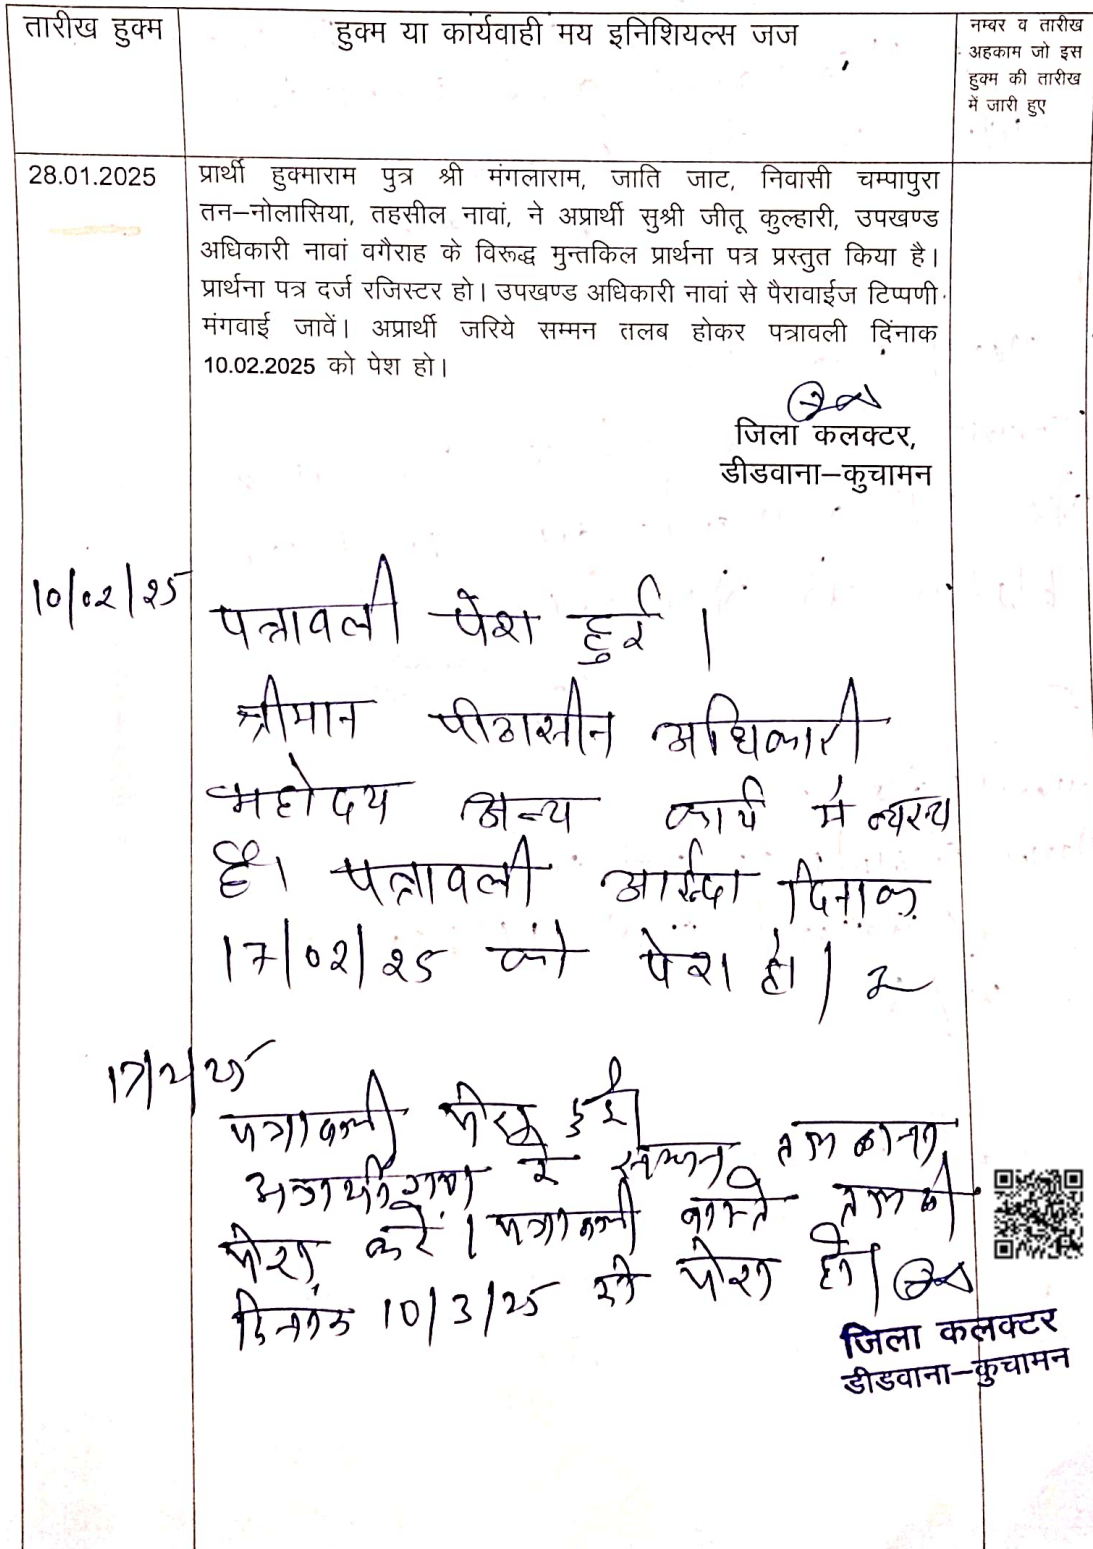 तारीख हुक्म
हुक्म या कार्यवाही मय इनिशियल्स जज
नम्बर व तारीख
अहकाम जो इस
हुक्म की तारीख
में जारी हुए
28.01.2025
प्रार्थी हुक्माराम पुत्र श्री मंगलाराम, जाति जाट, निवासी चम्पापुरा
तन–नोलासिया, तहसील नावां, ने अप्रार्थी सुश्री जीतू कुल्हारी, उपखण्ड
अधिकारी नावां वगैराह के विरूद्ध मुन्तकिल प्रार्थना पत्र प्रस्तुत किया है।
प्रार्थना पत्र दर्ज रजिस्टर हो। उपखण्ड अधिकारी नावां से पैरावाईज टिप्पणी
मंगवाई जावें। अप्रार्थी जरिये सम्मन तलब होकर पत्रावली दिंनाक
10.02.2025 को पेश हो।
जिला कलक्टर,
डीडवाना–कुचामन
10/02/25
पत्रावली पेश हुई ।
श्रीमान पीठासीन अधिकारी
महोदय अन्य कार्य में व्यस्थ
है। पत्रावली आईन्दा दिंनाक
17/02/25 को पेश हो।
17/2/25
पत्रावली पेश हुई।
अप्रार्थीगण के सम्मन तलबाना
पेश करें। पत्रावली वास्ते तलबी
दिनांक 10/3/25 को पेश हो।
जिला कलक्टर
डीडवाना–कुचामन